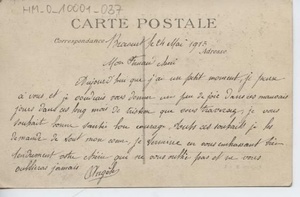 HM-D-10001-037
CARTE POSTALE
Correspondance
Adresse
le 24 Mai 1913
Mon
Aujourd'hui que j'ai un petit moment, je pense
à vous et je voudrais vous donner un peu de joie dans ces mauvais
jours dans ces long mois de que vous traversez, je vous
souhait bonne santé bon courage. Toute ces souhait je les
demande de tout mon cœur. je termine en vous embrassant bien
tendrement votre chérie que ne vous oublie pas et ne vous
oubliras jamais
Angèle